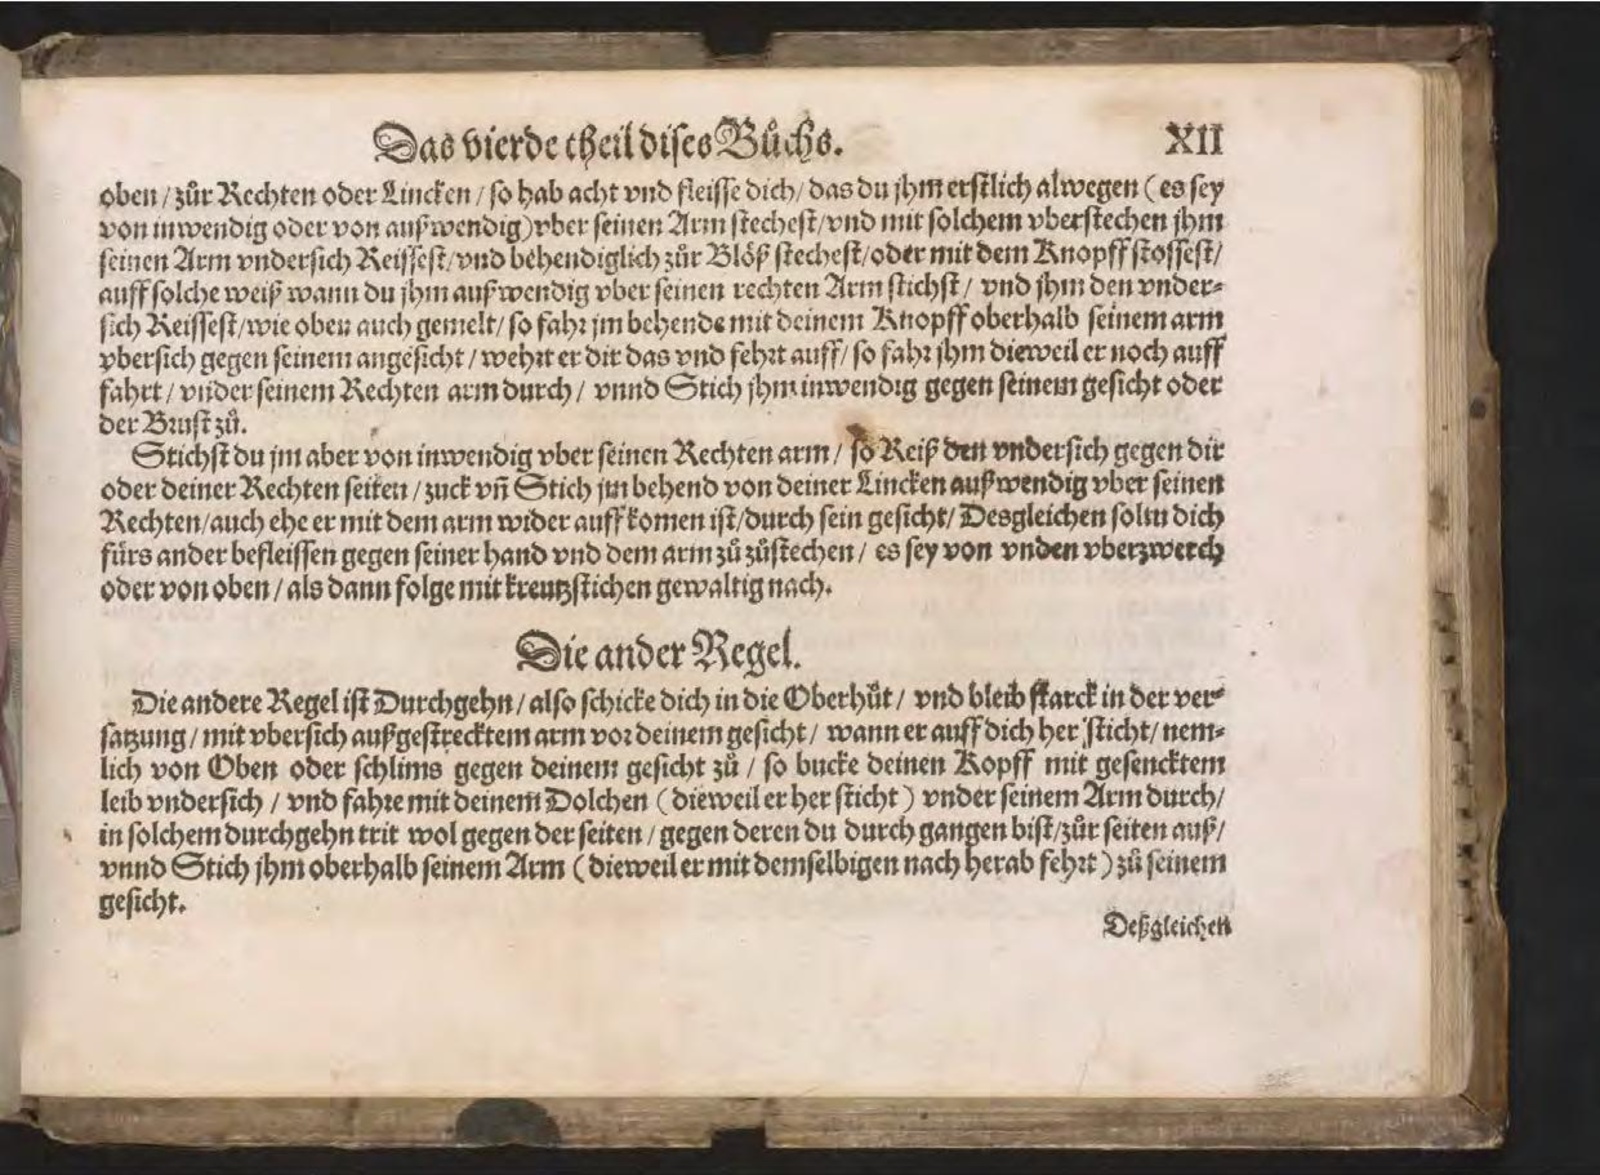 Das vierde theil dises Bůchs. XII
oben / zůr Rechten oder Lincken / so hab acht vnd fleisse dich / das du jhm erstlich alwegen (es sey
von inwendig oder von außwendig) vber seinen Arm stechest / vnd mit solchem vberstechen jhm
seinen Arm vndersich Reissest / vnd behendiglich zůr Blöß stechest / oder mit dem Knopff stossest /
auff solche weiß wann du jhm außwendig vber seinen rechten Arm stichst / vnd jhm den vnder-
sich Reissest / wie oben auch gemelt / so fahr jm behende mit deinem Knopff oberhalb seinem arm
vbersich gegen seinem angesicht / wehrt er dir das vnd fehrt auff / so fahr jhm dieweil er noch auff
fahrt / vnder seinem Rechten arm durch / vnnd Stich jhm inwendig gegen seinem gesicht oder
der Brust zů.
Stichst du jm aber von inwendig vber seinen Rechten arm / so Reiß den vndersich gegen dir
oder deiner Rechten seiten / zuck vn̄ Stich jm behend von deiner Lincken außwendig vber seinen
Rechten / auch ehe er mit dem arm wider auff komen ist / durch sein gesicht / Desgleichen soltu dich
fürs ander befleissen gegen seiner hand vnd dem arm zů zůstechen / es sey von vnden vberzwerch
oder von oben / als dann folge mit kreutzstichen gewaltig nach.
Die ander Regel.
Die andere Regel ist Durchgehn / also schicke dich in die Oberhůt / vnd bleib starck in der ver-
satzung / mit vbersich außgestrecktem arm vor deinem gesicht / wann er auff dich her sticht / nem-
lich von Oben oder schlims gegen deinem gesicht zů / so bucke deinen Kopff mit gesencktem
leib vndersich / vnd fahre mit deinem Dolchen (dieweil er her sticht) vnder seinem Arm durch /
in solchem durchgehn trit wol gegen der seiten / gegen deren du durch gangen bist / zůr seiten auß /
vnnd Stich jhm oberhalb seinem Arm (dieweil er mit demselbigen nach herab fehrt) zů seinem
gesicht.
Deßgleichen